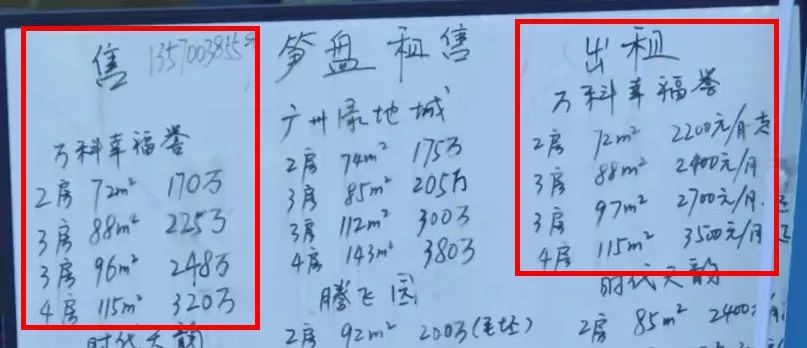 售 1357003855
笋盘租售
出租
万科幸福誉
2房 72m² 170万
3房 88m² 225万
3房 96m² 248万
4房 115m² 320万
时代天韵
广州绿地城
2房 74m² 175万
3房 85m² 205万
3房 112m² 300万
4房 143m² 380万
腾飞园
2房 92m² 200万(毛坯)
万科幸福誉
2房 72m² 2200元/月
3房 88m² 2400元/月
3房 97m² 2700元/月
4房 115m² 3500元/月
时代天韵
2房 85m² 2400